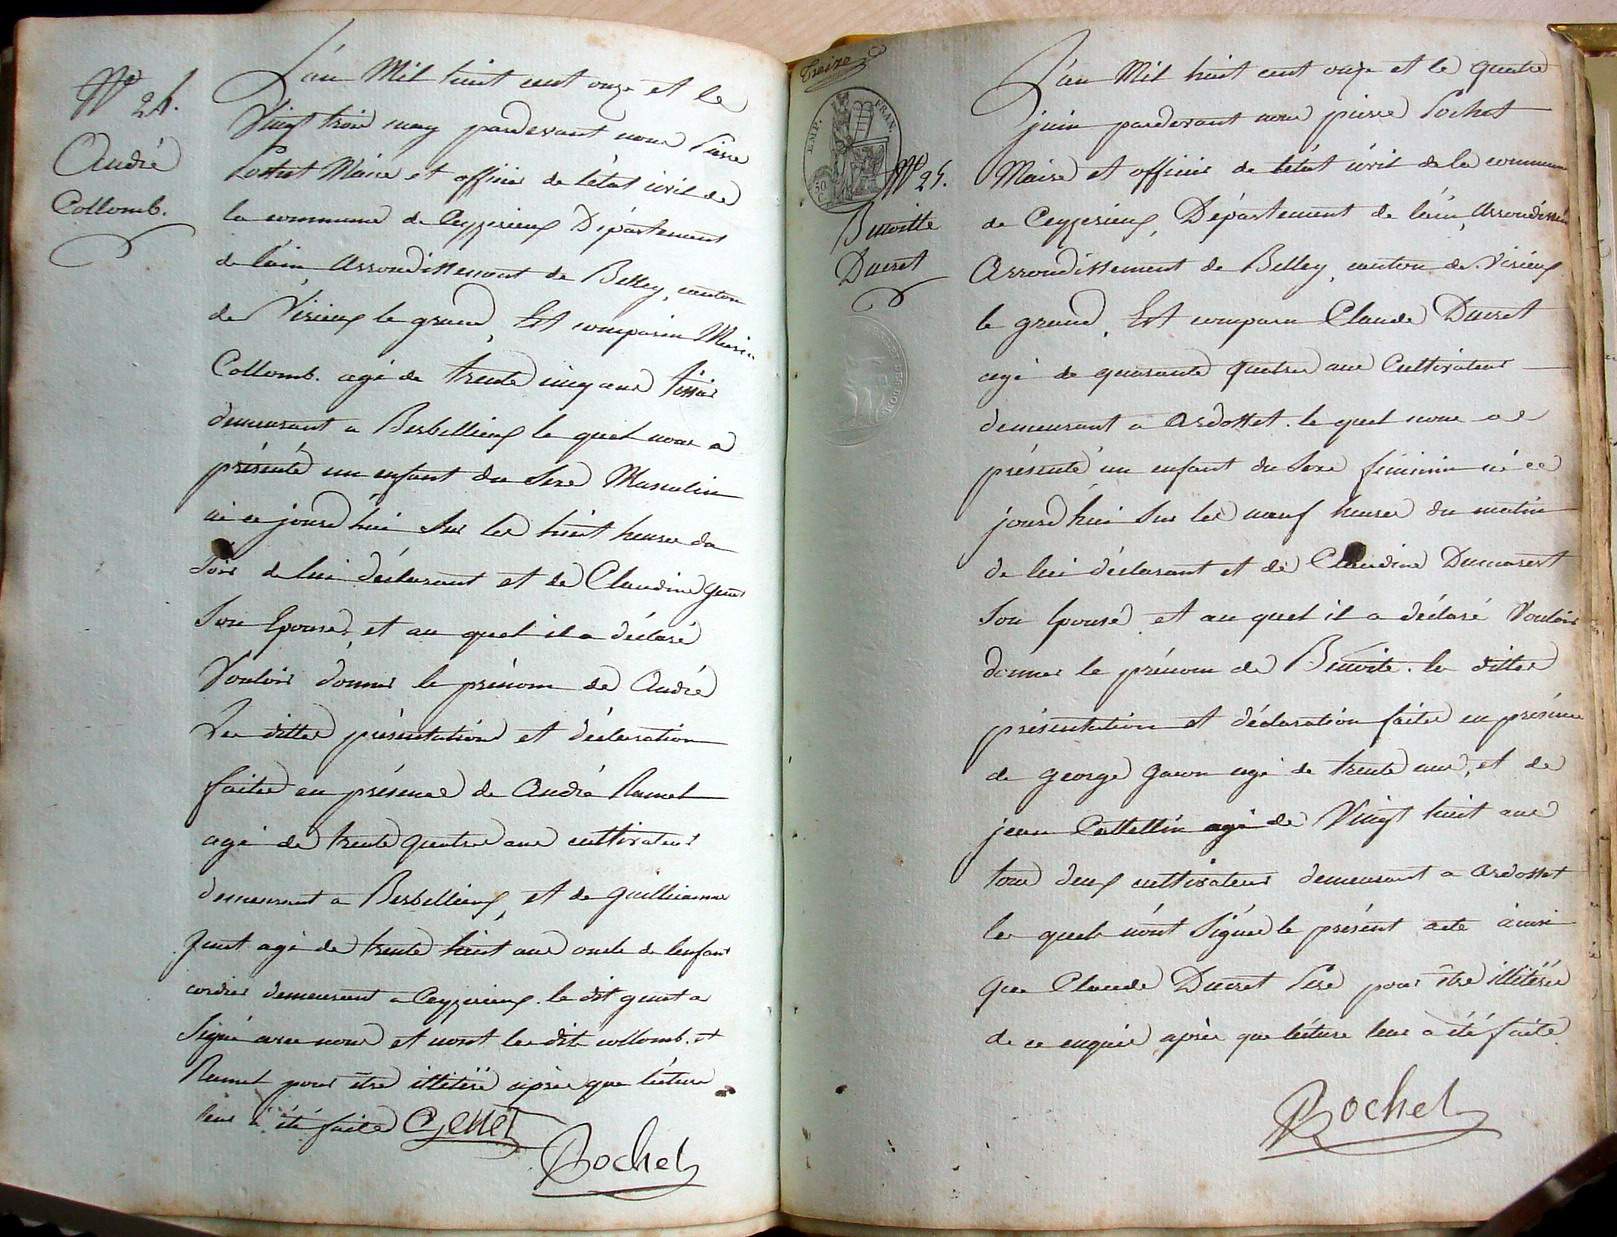 N° 24.
André
Collomb.
L'an Mil huit cent onze et le
Vingt trois may pardevant nous Pierre
Rochet Maire et officier de l'état civil de
la commune de Ceyzerieux Département
de l'ain arrondissement de Belley, canton
de Virieux le grand, Est comparu
Collomb. agé de trente cinq ans tissier
demeurant a Berbellieux le quel nous a
présenté un enfant du Sexe Masculin
né ce jourd'hui Sur les huit heures du
Soir de lui déclarant et de Claudine
Son Epouse, et au quel il a déclaré
Vouloir donner le prénom de André
Les dittes présentation et déclaration
faites en présence de André Ramel
agé de trente quatre ans cultivateur
demeurant a Berbellieux, et de guilliaume
agé de trente huit ans oncle de lenfant
cordier demeurant a Ceyzerieux. le dit genet a
Signé avec nous et nont les dits collomb. et
Ramel pour être illitéré après que lécture
leur a été faite Genet
Rochet
Treize
EMP. FRAN.
50 C
N° 25.
Benoitte
Ducret
L'an Mil huit cent onze et le quatre
juin pardevant nous pierre Rochet
Maire et officier de l'état civil de la commune
de Ceyzerieux, Département de l'ain,
Arrondissement de Belley, canton de Virieux
le grand, Est comparu Claude Ducret
agé de quarante quatre ans Cultivateur
demeurant a Ardosset. le quel nous a
présenté un enfant du Sexe féminin né ce
jourd'hui Sur les nœuf heures du matin
de lui déclarant et de Claudine Dumarest
Son Epouse et au quel il a déclaré Vouloir
donner le prénom de Benoite. les dittes
présentation et déclaration faites en présence
de george gavon agé de trente ans, et de
jean Cattellin agé de Vingt huit ans
tous deux cultivateurs demeurant a Ardosset
les quels n'ont Signés le présent acte ainsi
que Claude Ducret Père pour être illitérés
de ce enquis après que lécture leur a été faite.
Rochet